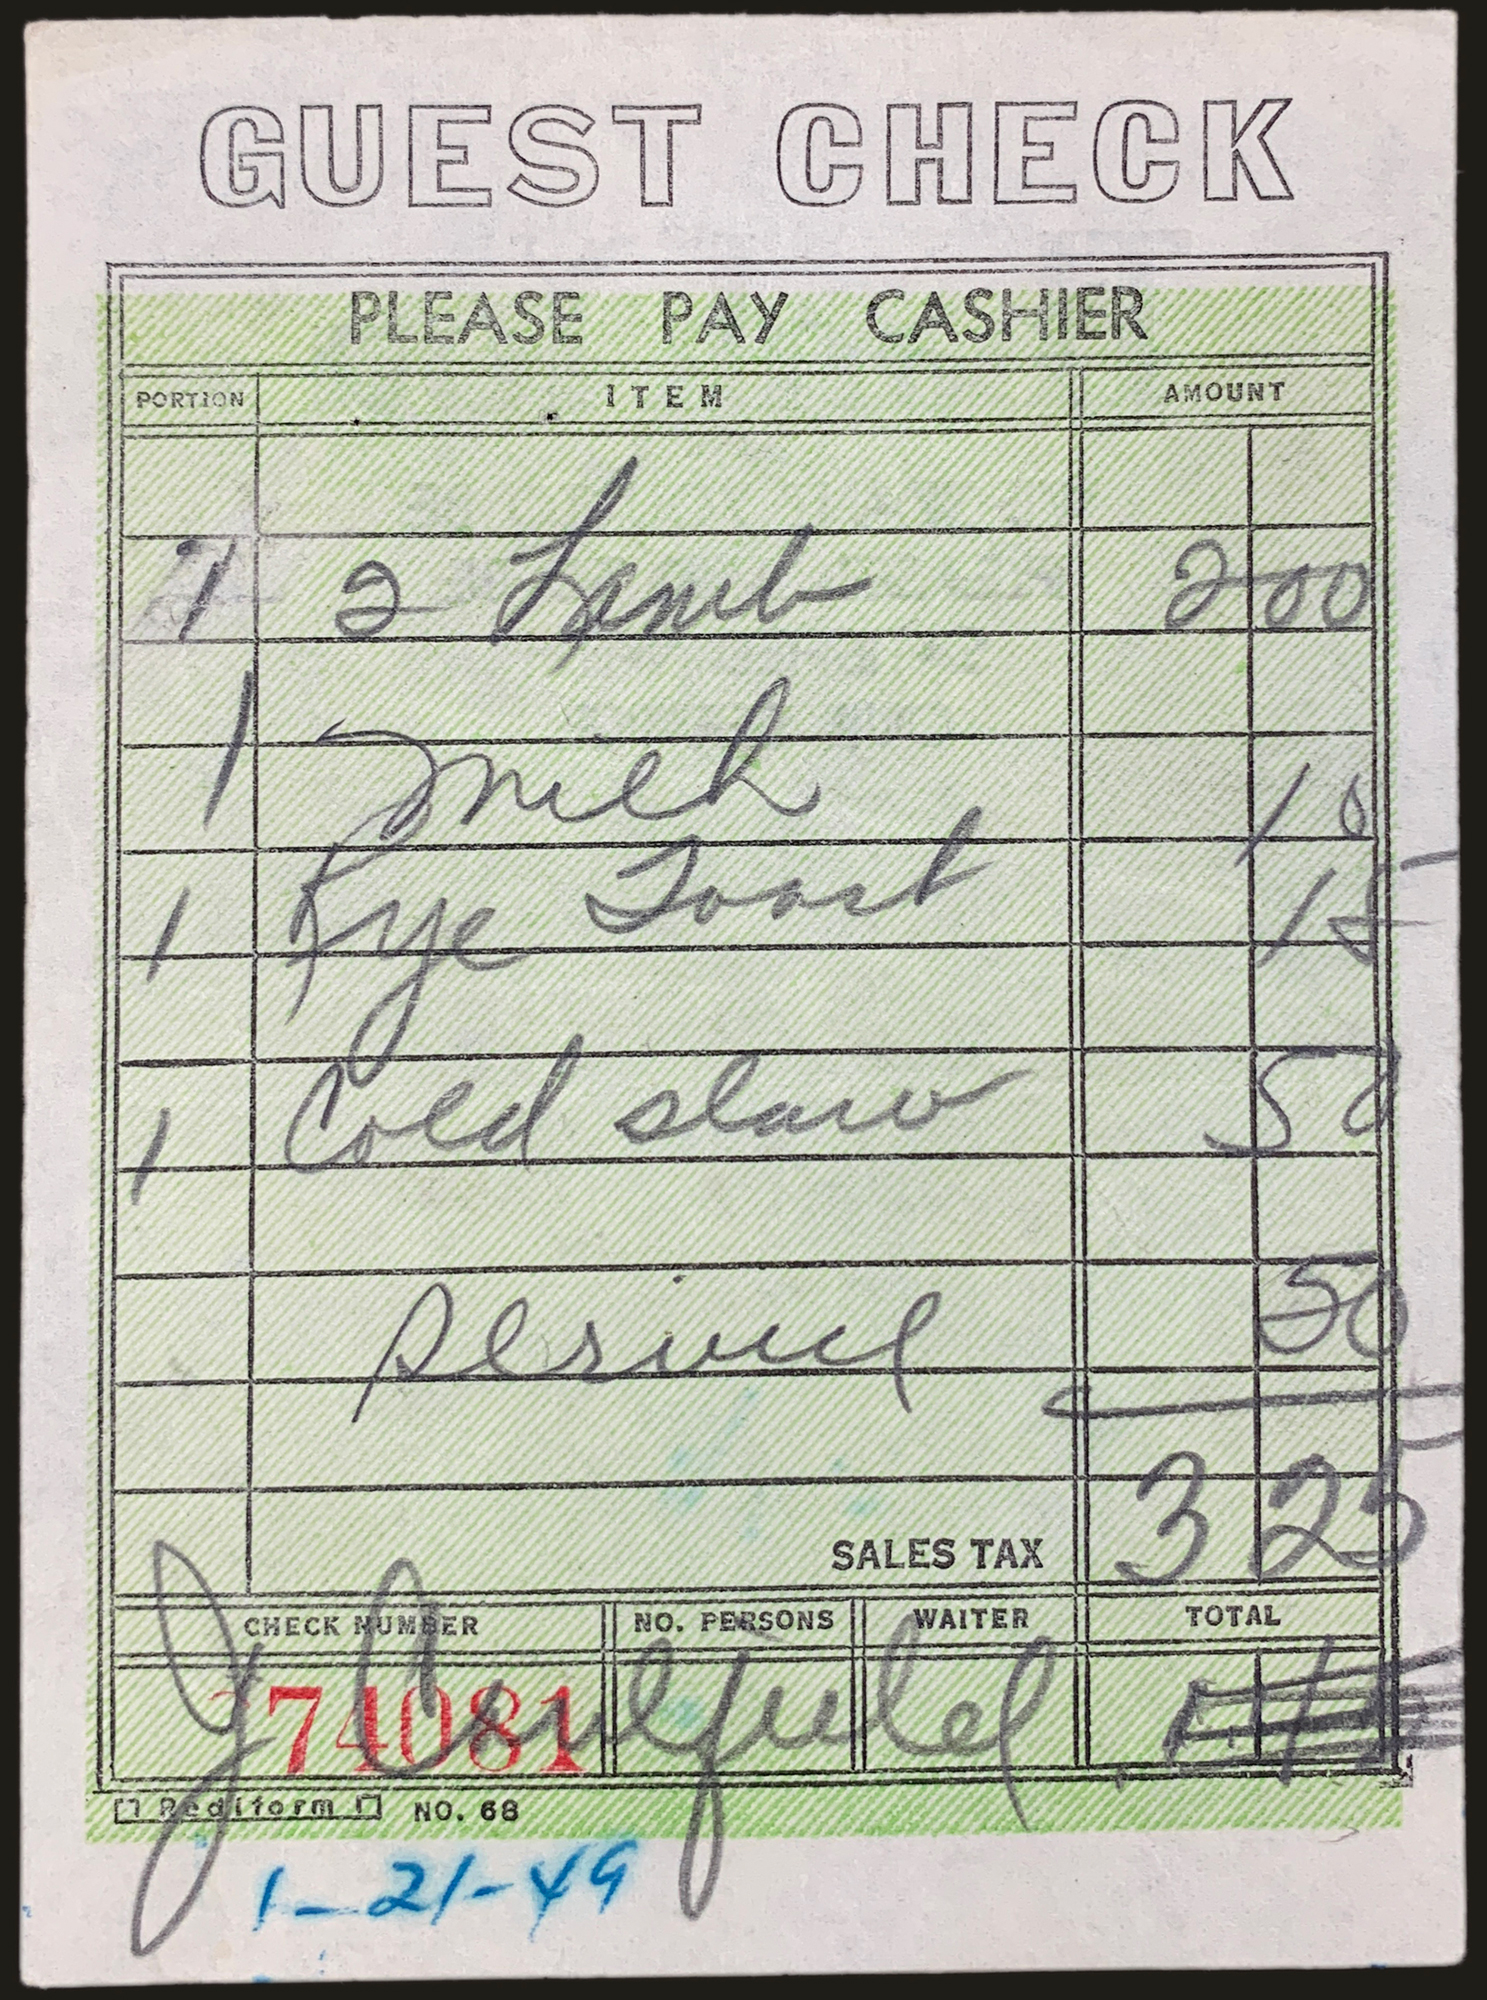 GUEST CHECK
PLEASE PAY CASHIER
PORTION ITEM AMOUNT
1 2 Lamb 2 00
1 milk 10
1 Rye Toast 15
1 Cold slaw 50
service 50
SALES TAX 3 25
CHECK NUMBER NO. PERSONS WAITER TOTAL
74081
J Caulfield
Rediform NO. 68
1-21-49